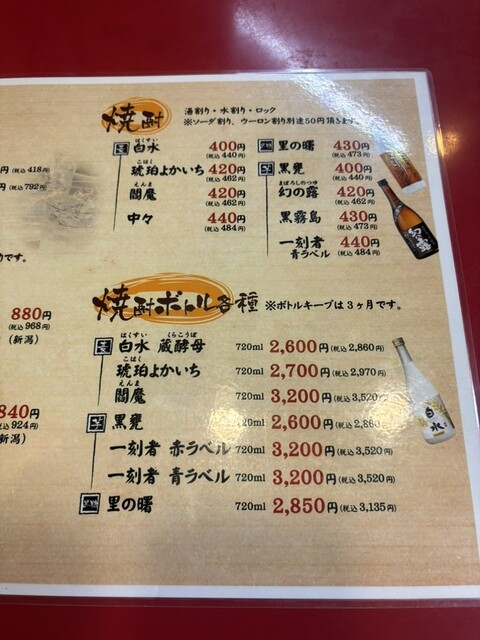 焼酎
湯割り・水割り・ロック
※ソーダ割り、ウーロン割り別途50円頂きます。
麦 白水 はくすい 400円 (税込 440円)
琥珀よかいち こはく 420円 (税込 462円)
閻魔 えんま 420円 (税込 462円)
中々 440円 (税込 484円)
里の曙 430円 (税込 473円)
芋 黒甕 400円 (税込 440円)
幻の露 まぼろしのつゆ 420円 (税込 462円)
黒霧島 430円 (税込 473円)
一刻者 青ラベル 440円 (税込 484円)
円 (税込 418円)
円 (税込 792円)
です。
880円
(税込 968円)
(新潟)
840円
(税込 924円)
新潟)
焼酎ボトル各種 ※ボトルキープは3ヶ月です。
麦 白水 蔵酵母 はくすい くらこうぼ 720ml 2,600円 (税込 2,860円)
琥珀よかいち こはく 720ml 2,700円 (税込 2,970円)
閻魔 えんま 720ml 3,200円 (税込 3,520円)
芋 黒甕 720ml 2,600円 (税込 2,860円)
一刻者 赤ラベル 720ml 3,200円 (税込 3,520円)
一刻者 青ラベル 720ml 3,200円 (税込 3,520円)
里の曙 720ml 2,850円 (税込 3,135円)
白水